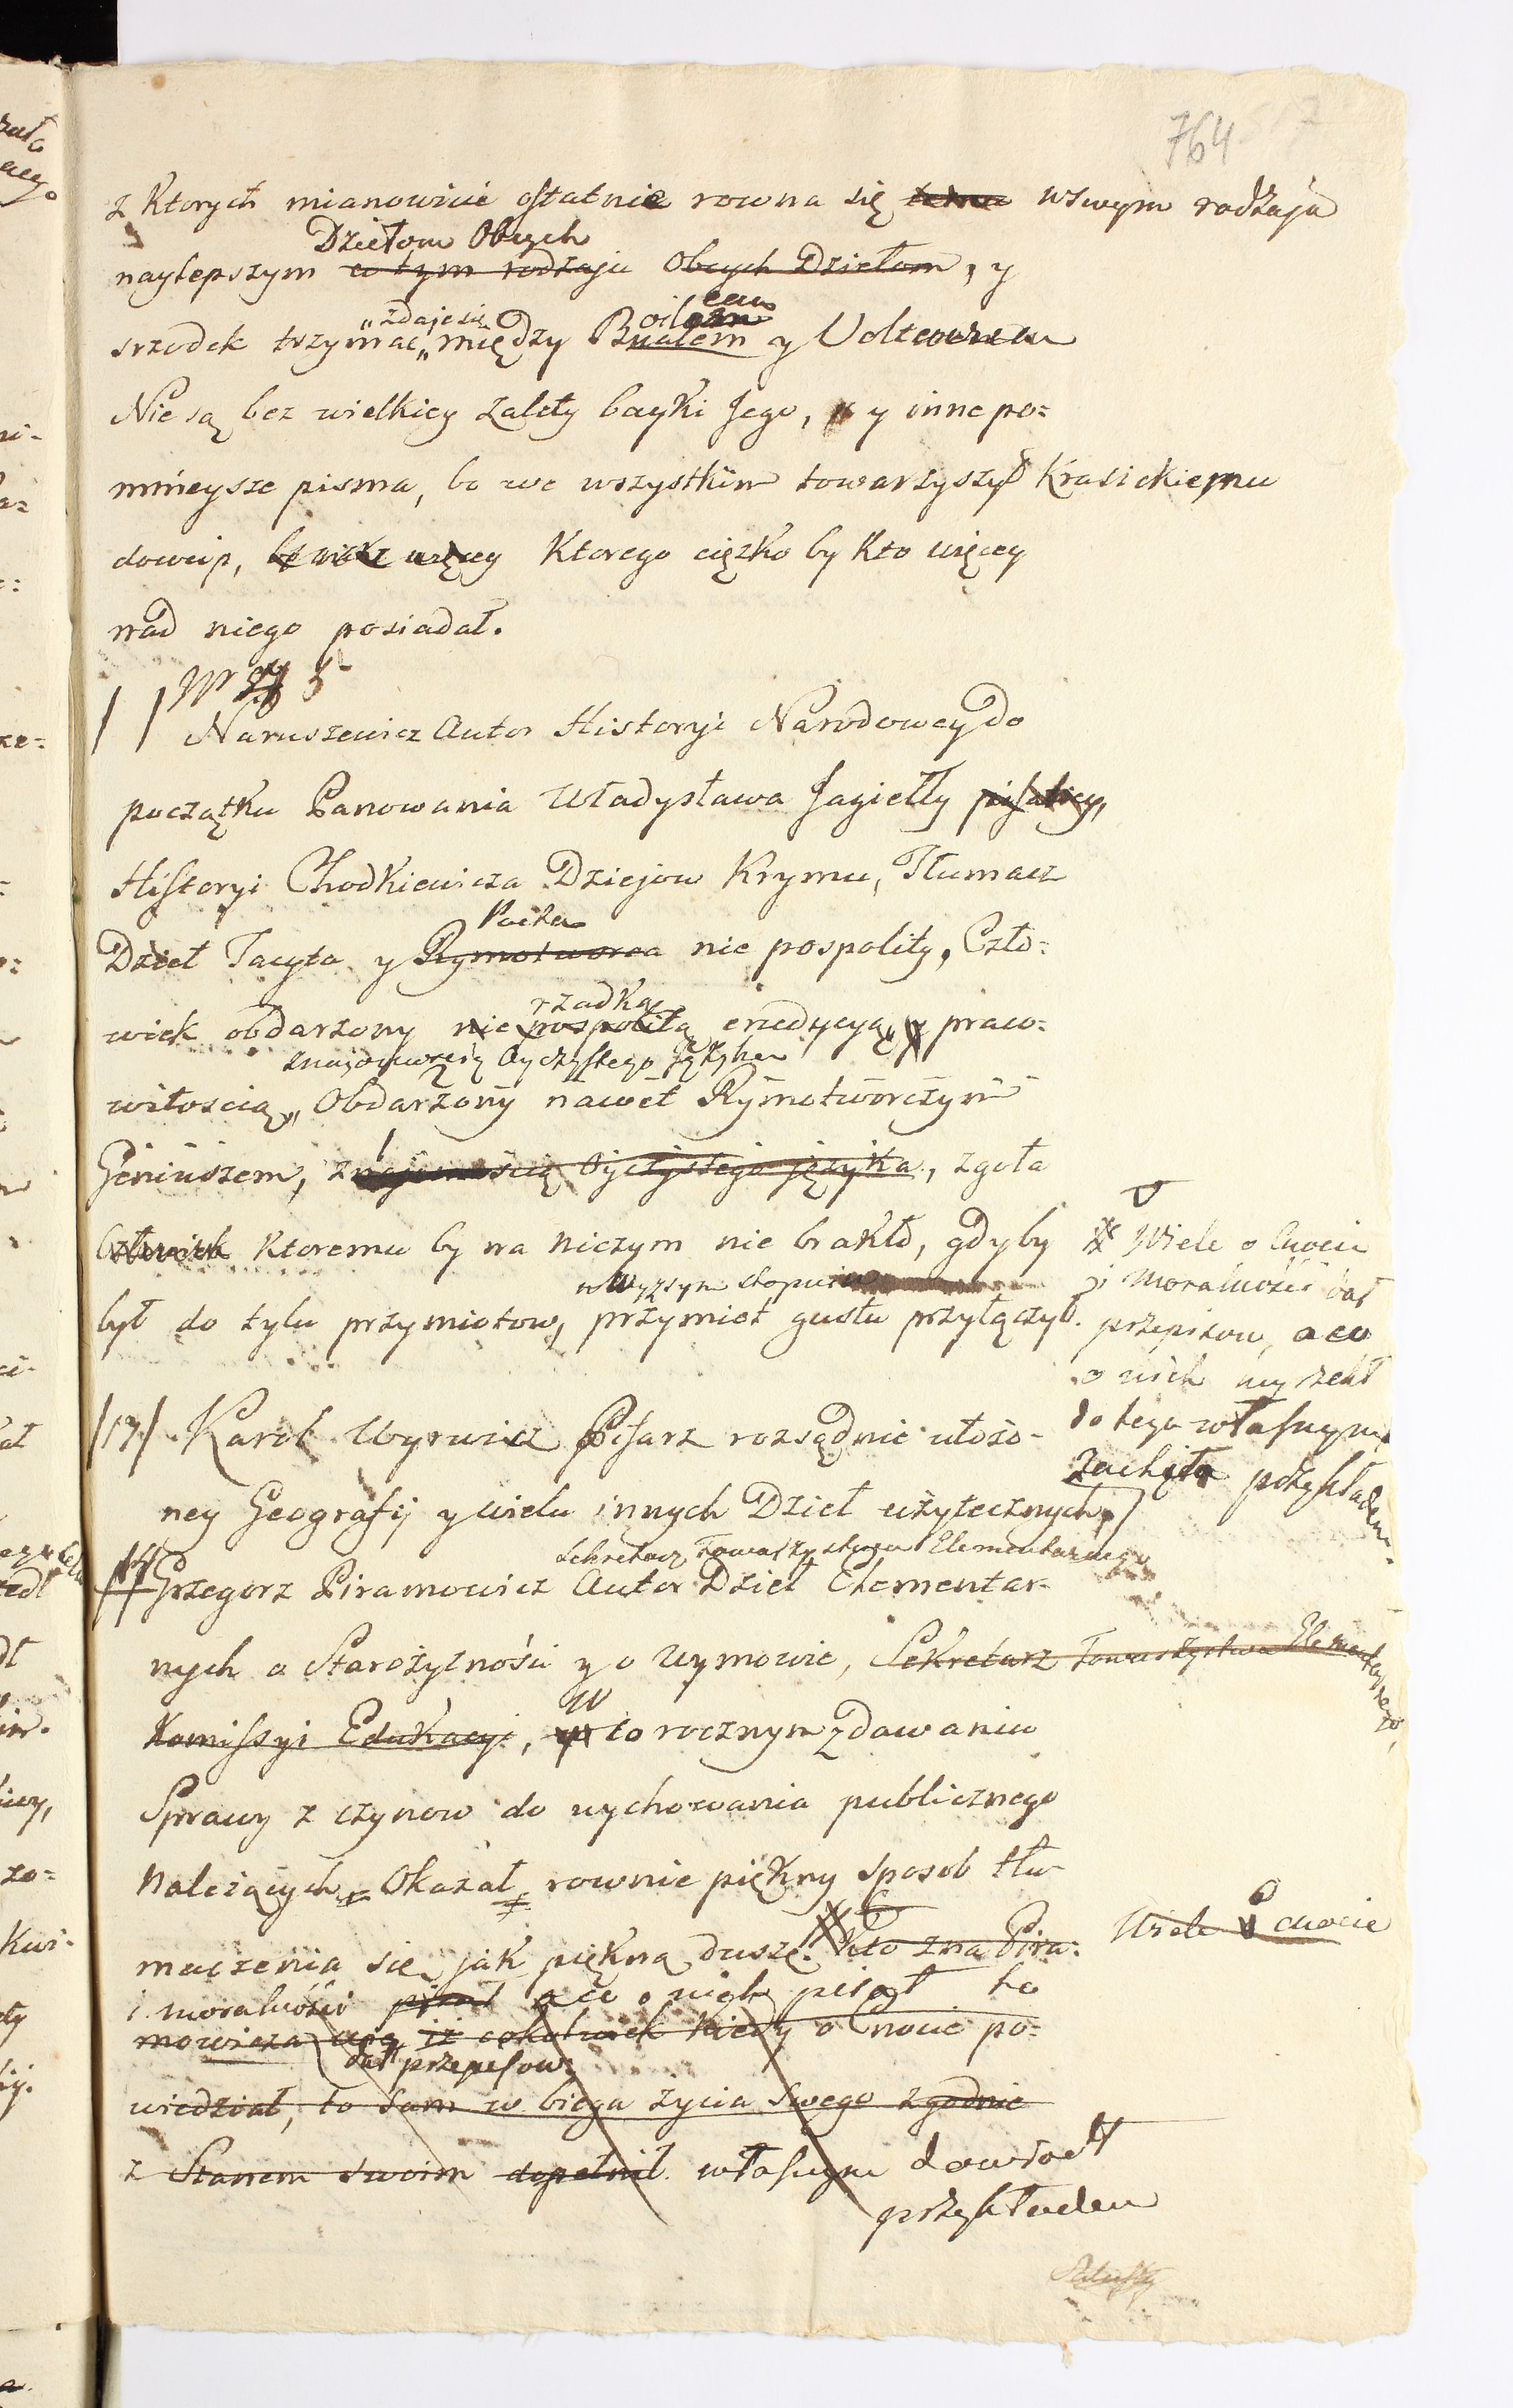 764
z Ktorych mianowicie ostatnie rowna się wswym rodzaju
Dziełom Obcych
naylepszym w tym rodzaju Obcych Dziełom, y
„zdaje się
srzodek trzymać „między Boileau y Volterem
Nie są bez wielkiey zalety bayki Jego, y inne po=
mnieysze pisma, bo we wszystkim towarzyszył Krasickiemu
dowcip, Ktorego ciężko by Kto więcey
nad niego posiadał.
Naruszewicz Autor Historyi Narodowey do
początku Panowania Władysława Jagiełły pisaney,
Historyi Chodkiewicza Dziejow Krymu, Tłumacz
Poeta
Dzieł Tacyta y Rymotworca nie pospolity, Czło=
rzadką
wiek obdarzony nie pospolitą erudycyą, y praw=
znajomością Oyczystego języka
witoscią „ Obdarzony nawet Rymotworczym
Geniuszem, znajomością Oyczystego języka, zgoła
Człowiek Ktoremu by na niczym nie brakło, gdyby
w wyższym stopniu
był do tylu przymiotow, przymiot gustu przyłączył.
/13/ Karol Wyrwicz Pisarz rozsądnie ułożo-
ney Geografij y wielu innych Dzieł użytecznych
Sekretarz Towarzystwa Elementarnego
/14/ Grzegorz Piramowicz Autor Dzieł Elementar-
nych o Starożytności y o Wymowie, Sekretarz Towarzystwa Elementarnego
Komissyi Edukacyi, w co rocznym zdawaniu
Sprawy z czynow do wychowania publicznego
Należących Okazał rownie piękny sposob tłu-
maczenia się jak piękną duszę. Kto zna Pira=
i moralności pisał a co o nich pisał to
mowicza wie iż cokolwiek kiedy o Cnocie po=
dał przepisow
wiedział, to sam w biegu życia swego zgodnie
z Stanem swoim dopełnił. własnym dowiodł
przykładem
Wiele o Cnocie
i moralności dał
przepisow, a co
o nich wyrzekł
do tego własnym
zachęta przykładem.
Wiele o cnocie